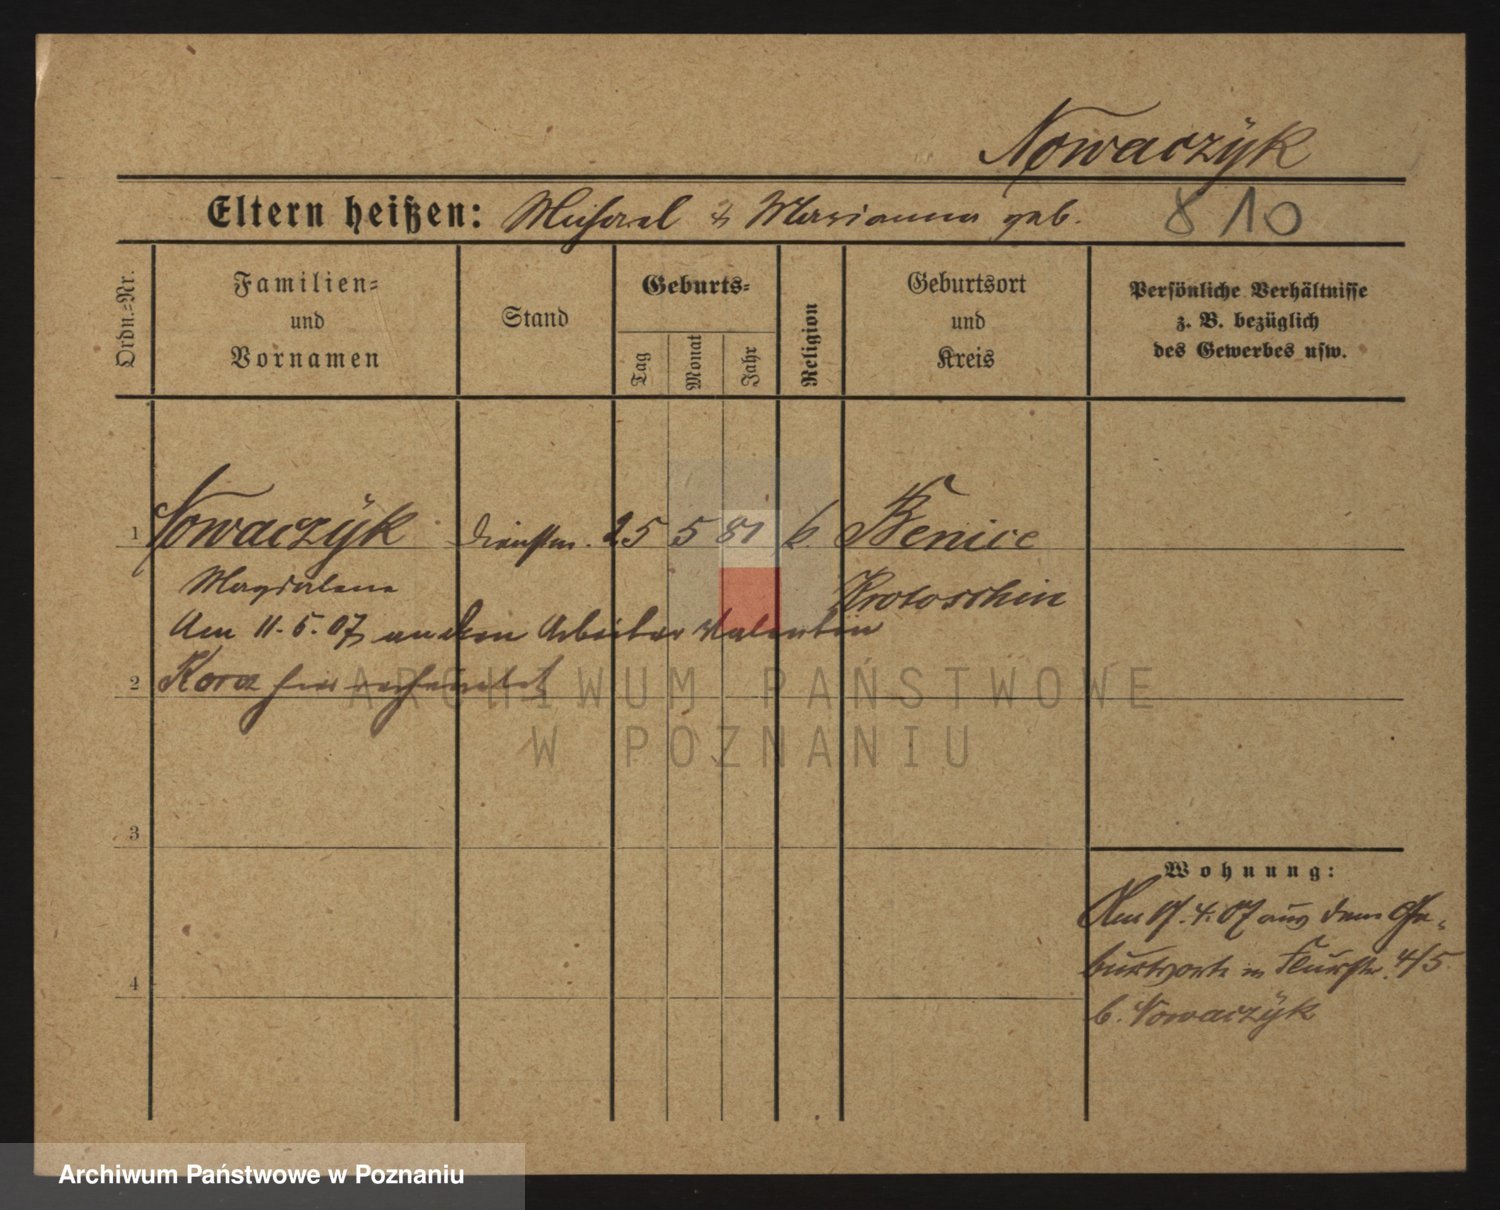 Nowaczÿk
Eltern heißen: Michael & Marianna geb. 810
Ordn.-Nr.
Familien- und Vornamen
Stand
Geburts-
Tag
Monat
Jahr
Religion
Geburtsort und Kreis
Persönliche Verhältnisse
z. B. bezüglich
des Gewerbes usw.
1 Nowaczÿk Dienstm. 25 5 81 k. Benice
Magdalena Krotoschin
Am 11.5.07 an den Arbeiter Valentin
2 Kora hier verheiratet
3
Wohnung:
Am 17.4.07 aus dem Ge-
burtsorte in Flurstr. 4/5
4
b. Nowaczÿk
ARCHIWUM PAŃSTWOWE
W POZNANIU
Archiwum Państwowe w Poznaniu